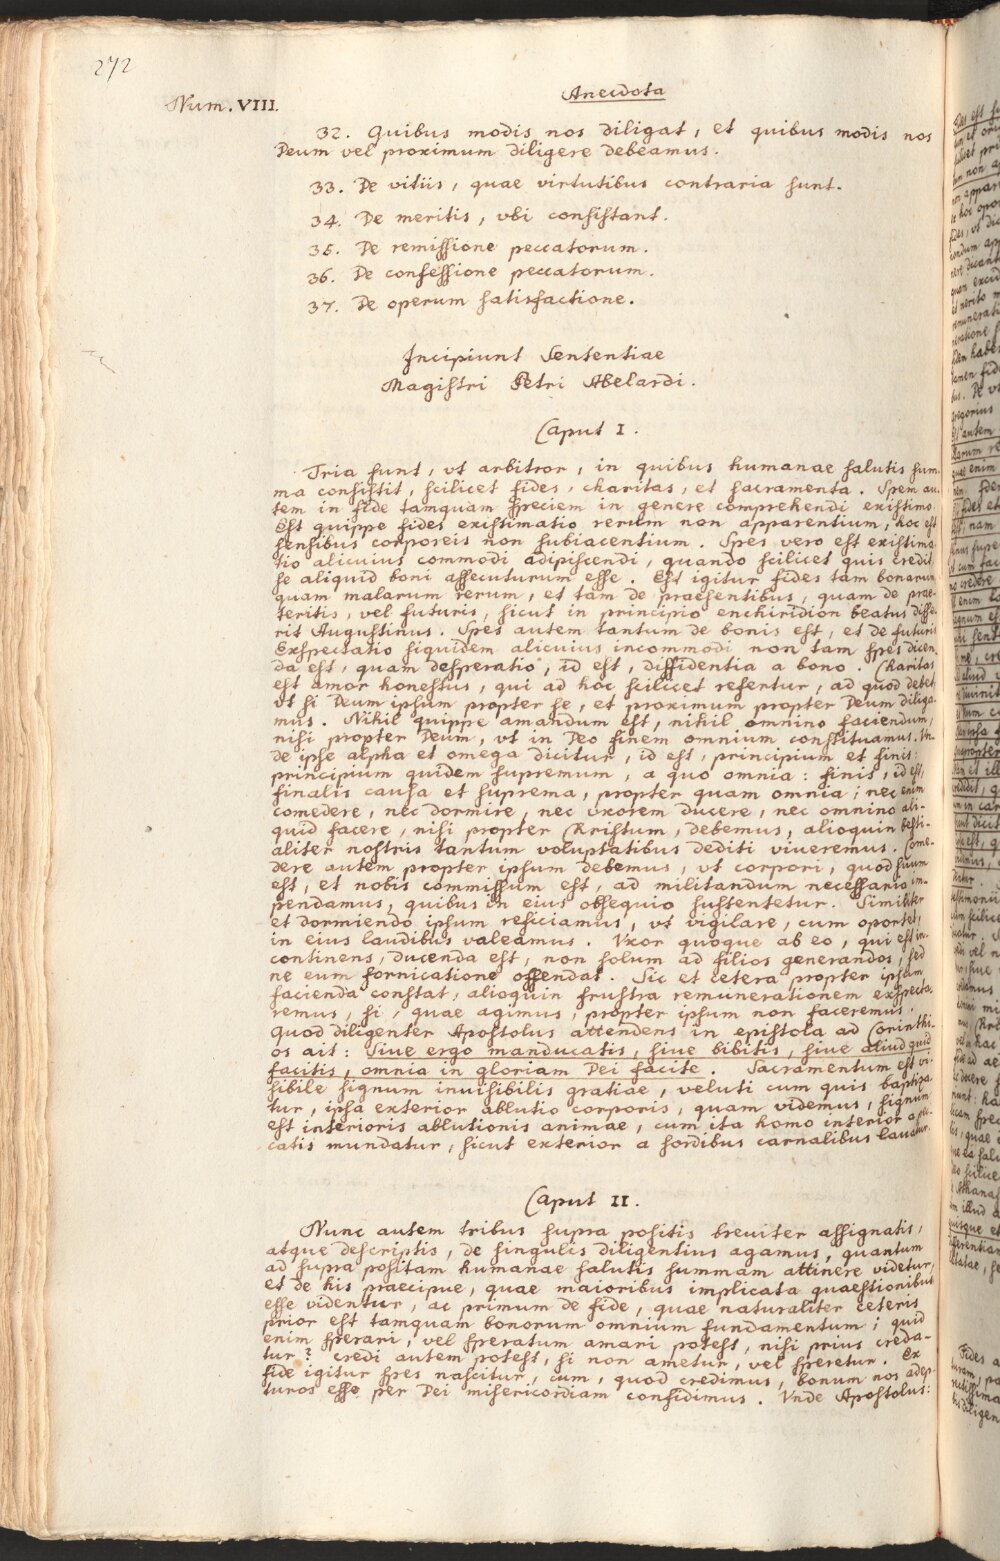 272
Num. VIII.
Anecdota
32. Quibus modis nos diligat, et quibus modis nos
Deum vel proximum diligere debeamus.
33. De vitiis, quae virtutibus contraria sunt.
34. De meritis, vbi consistant.
35. De remissione peccatorum.
36. De confessione peccatorum.
37. De operum satisfactione.
Incipiunt Sententiae
Magistri Petri Abelardi.
Caput I.
Tria sunt, vt arbitror, in quibus humanae salutis sum-
ma consistit, scilicet fides, charitas, et sacramenta. Spem au-
tem in fide tamquam speciem in genere comprehendi existimo.
Est quippe fides existimatio rerum non apparentium, hoc est
sensibus corporeis non subiacentium. Spes vero est existima-
tio alicuius commodi adipiscendi, quando scilicet quis credit
se aliquid boni assecuturum esse. Est igitur fides tam bonarum
quam malarum rerum, et tam de praesentibus, quam de prae-
teritis, vel futuris, sicut in principio enchiridion beatus disse-
rit Augustinus. Spes autem tantum de bonis est, et de futuris
Exspectatio siquidem alicuius incommodi non tam spes dicen-
da est, quam desperatio, id est, diffidentia a bono. Charitas
est amor honestus, qui ad hoc scilicet refertur, ad quod debet,
vt si Deum ipsum propter se, et proximum propter Deum diliga-
mus. Nihil quippe amandum est, nihil omnino faciendum,
nisi propter Deum, vt in Deo finem omnium constituamus. Vn-
de ipse alpha et omega dicitur, id est, principium et finis:
principium quidem supremum, a quo omnia: finis, id est,
finalis causa et suprema, propter quam omnia; nec enim
comedere, nec dormire, nec vxorem ducere, nec omnino ali-
quid facere, nisi propter Christum, debemus, alioquin besti-
aliter nostris tantum voluptatibus dediti viueremus. Come-
dere autem propter ipsum debemus, vt corpori, quod suum
est, et nobis commissum est, ad militandum necessaria im-
pendamus, quibus in eius obsequio sustentetur. Similiter
et dormiendo ipsum reficiamus, vt vigilare, cum oportet,
in eius laudibus valeamus. Vxor quoque ab eo, qui est in-
continens, ducenda est, non solum ad filios generandos, sed
ne eum fornicatione offendat. Sic et cetera propter ipsum
facienda constat, alioquin frustra remunerationem exspecta-
remus, si, quae agimus, propter ipsum non faceremus.
Quod diligenter Apostolus attendens in epistola ad Corinthi-
os ait: Siue ergo manducatis, siue bibitis, siue aliud quid
facitis, omnia in gloriam Dei facite. Sacramentum est vi-
sibile signum inuisibilis gratiae, veluti cum quis baptiza-
tur, ipsa exterior ablutio corporis, quam videmus, signum
est interioris ablutionis animae, cum ita homo interior a pec-
catis mundatur, sicut exterior a sordibus carnalibus lauatur.
Caput II.
Nunc autem tribus supra positis breuiter assignatis,
atque descriptis, de singulis diligentius agamus, quantum
ad supra positam humanae salutis summam attinere videtur,
et de his praecipue, quae maioribus implicata quaestionibus
esse videntur, ac primum de fide, quae naturaliter ceteris
prior est tamquam bonorum omnium fundamentum; quid
enim sperari, vel speratum amari potest, nisi prius creda-
tur? credi autem potest, si non ametur, vel speretur. Ex
fide igitur spes nascitur, cum, quod credimus, bonum nos adep-
turos esse per Dei misericordiam confidimus. Vnde Apostolus: